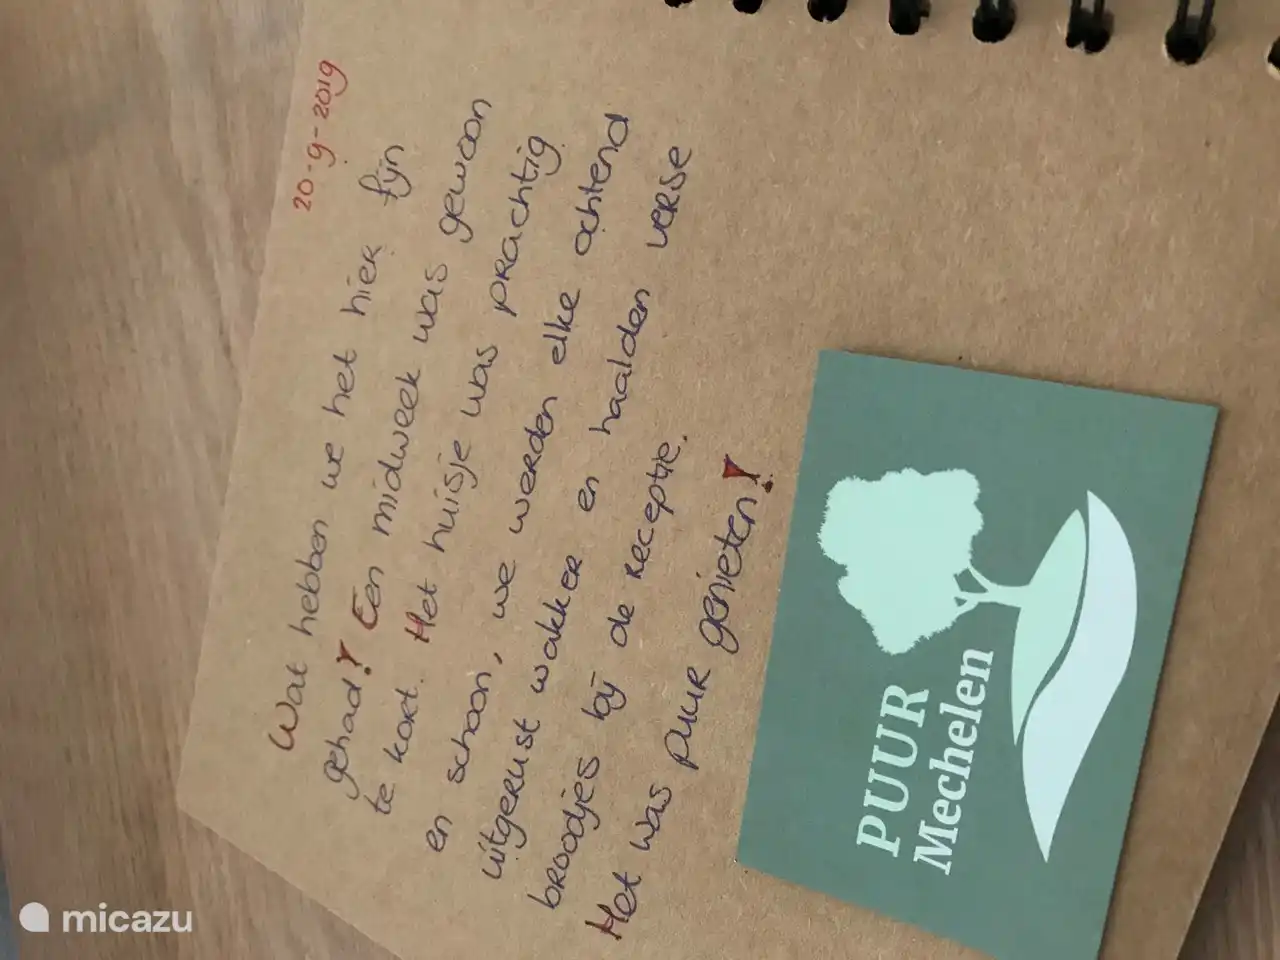 20-9-2019
Wat hebben we het hier fijn
gehad! Een midweek was gewoon
te kort. Het huisje was prachtig
en schoon, we werden elke ochtend
uitgerust wakker en haalden verse
broodjes bij de receptie.
Het was puur genieten!
PUUR
Mechelen
micazu